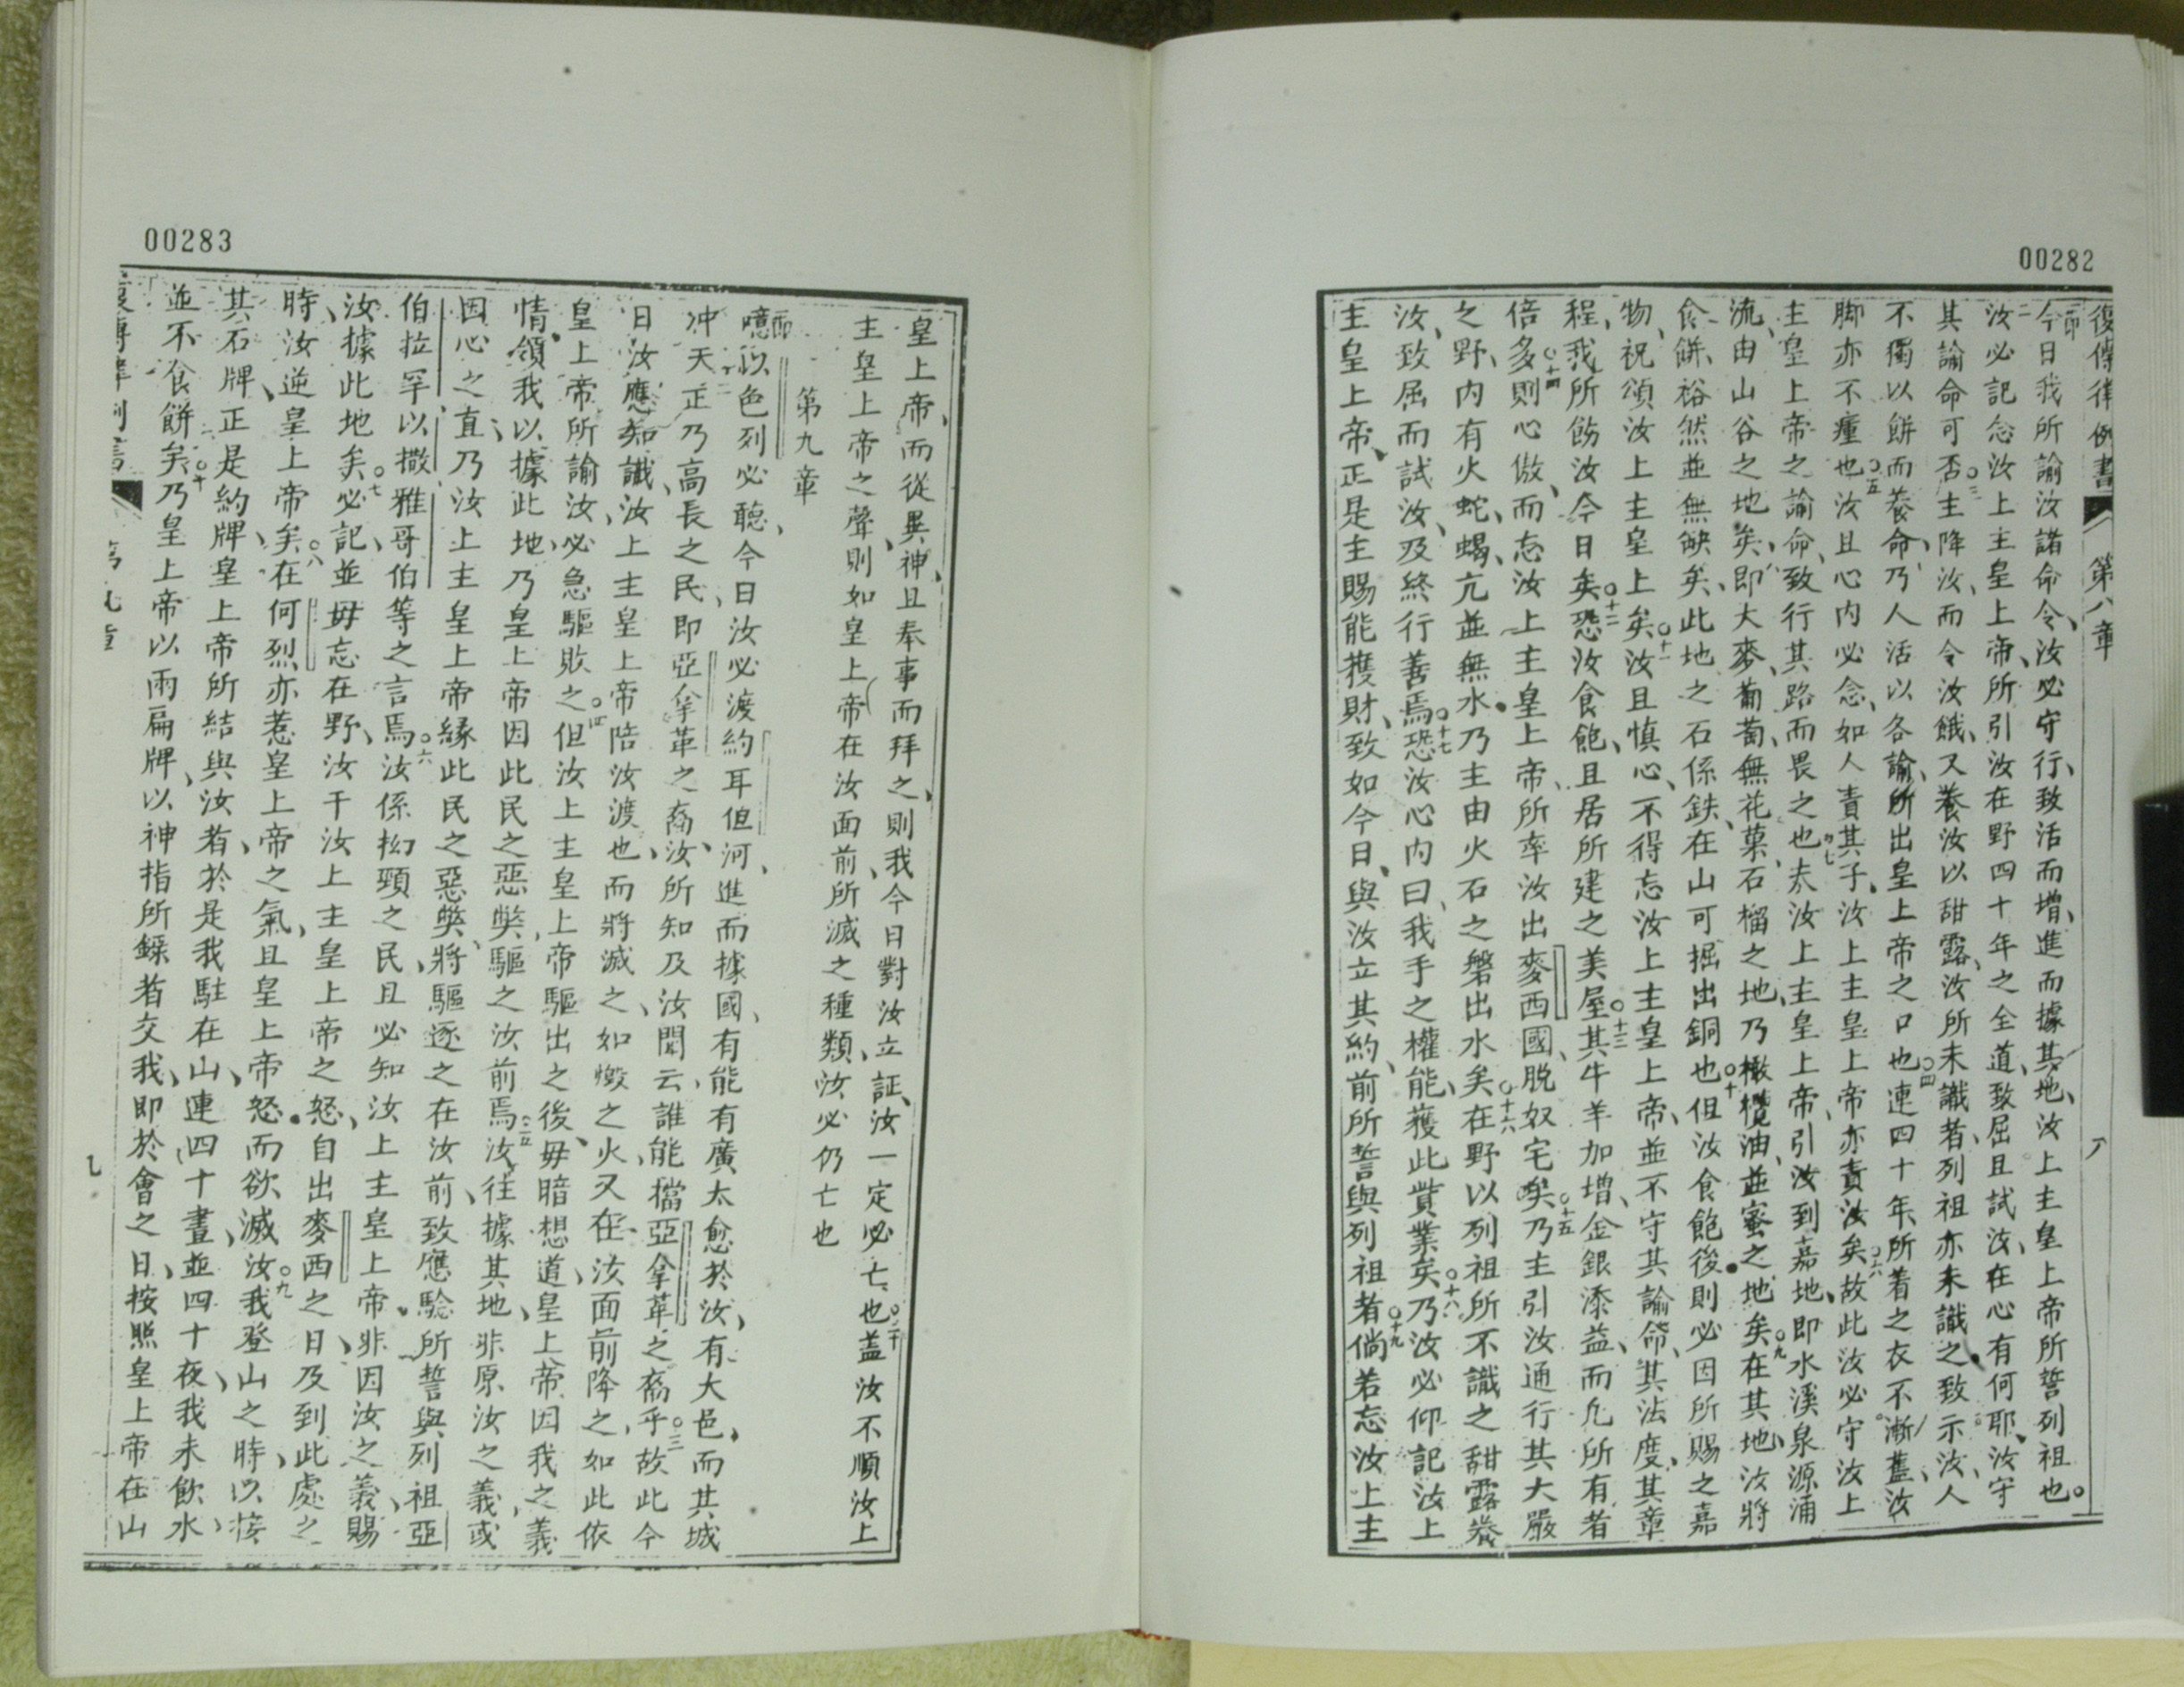 00282
復傳律例書 第八章 八
今日我所諭汝諸命令、汝必守行、致活而增、進而據其地、汝上主皇上帝所誓列祖也。
二汝必記念汝上主皇上帝、所引汝在野四十年之全道、致屈且試汝、在心有何耶、汝守
其諭命可否○三主降汝、而令汝餓、又養汝以甜露、汝所未識者、列祖亦未識之、致示汝、人
不獨以餅而養命、乃人活以各諭、所出皇上帝之口也○四連四十年、所着之衣不漸舊、汝
脚亦不瘇也○五汝且心內必念、如人責其子、汝上主皇上帝亦責汝矣○六故此汝必守汝上
主皇上帝之諭命、致行其路而畏之也○七夫汝上主皇上帝、引汝到嘉地、即水溪泉源涌
流、由山谷之地矣、即大麥、葡萄、無花菓、石榴之地、乃橄欖油、並蜜之地矣○九在其地、汝將
食餅、裕然並無缺矣、此地之石係鉄、在山可掘出銅也○十但汝食飽後、則必因所賜之嘉
物、祝頌汝上主皇上矣○十一汝且慎心、不得忘汝上主皇上帝、並不守其諭命、其法度、其章
程、我所飭汝今日矣○十二恐汝食飽、且居所建之美屋○十三其牛羊加增、金銀添益、而凡所有者
倍多○十四則心傲、而忘汝上主皇上帝、所率汝出麥西國、脱奴宅矣○十五乃主引汝通行其大嚴
之野、內有火蛇、蝎、亢並無水、乃主由火石之磐出水矣○十六在野以列祖所不識之甜露養
汝、致屈而試汝、及終行善焉○十七恐汝心內曰、我手之權能、獲此貲業矣○十八乃汝必仰記汝上
主皇上帝、正是主賜能獲財、致如今日、與汝立其約、前所誓與列祖者○十九倘若忘汝上主
00283
皇上帝、而從異神、且奉事而拜之、則我今日對汝立証、汝一定必亡也○二十蓋汝不順汝上
主皇上帝之聲、則如皇上帝在汝面前、所滅之種類、汝必仍亡也
第九章
一節噫以色列必聽、今日汝必渡約耳但河、進而據國、有能有廣太愈於汝、有大邑、而其城
冲天○二正乃高長之民、即亞拿革之裔、汝所知及汝聞云、誰能擋亞拿革之裔乎○三故此今
日汝應知識、汝上主皇上帝陪汝渡也、而將滅之、如燬之火、又在汝面前降之、如此依
皇上帝所諭汝、必急驅敗之○四但汝上主皇上帝驅出之後、毋暗想道、皇上帝因我之義
情、領我以據此地、乃皇上帝因此民之惡獘、驅之汝前焉○五汝往據其地、非原汝之義、或
因心之直、乃汝上主皇上帝緣此民之惡獘、將驅逐之在汝前、致應騐所誓與列祖亞
伯拉罕以撒雅哥伯等之言焉○六汝係拗頸之民、且必知汝上主皇上帝、非因汝之義、賜
汝據此地矣○七必記、並毋忘在野、汝干汝上主皇上帝之怒、自出麥西之日、及到此處之
時、汝逆皇上帝矣○八在何烈、亦惹皇上帝之氣、且皇上帝怒而欲滅汝○九我登山之時、以接
其石牌、正是約牌、皇上帝所結與汝者、於是我駐在山、連四十晝並四十夜、我未飲水、
並不食餅矣○十乃皇上帝以兩扁牌、以神指所錄者交我、即於會之日、按照皇上帝在山
復傳律例書 第九章 九